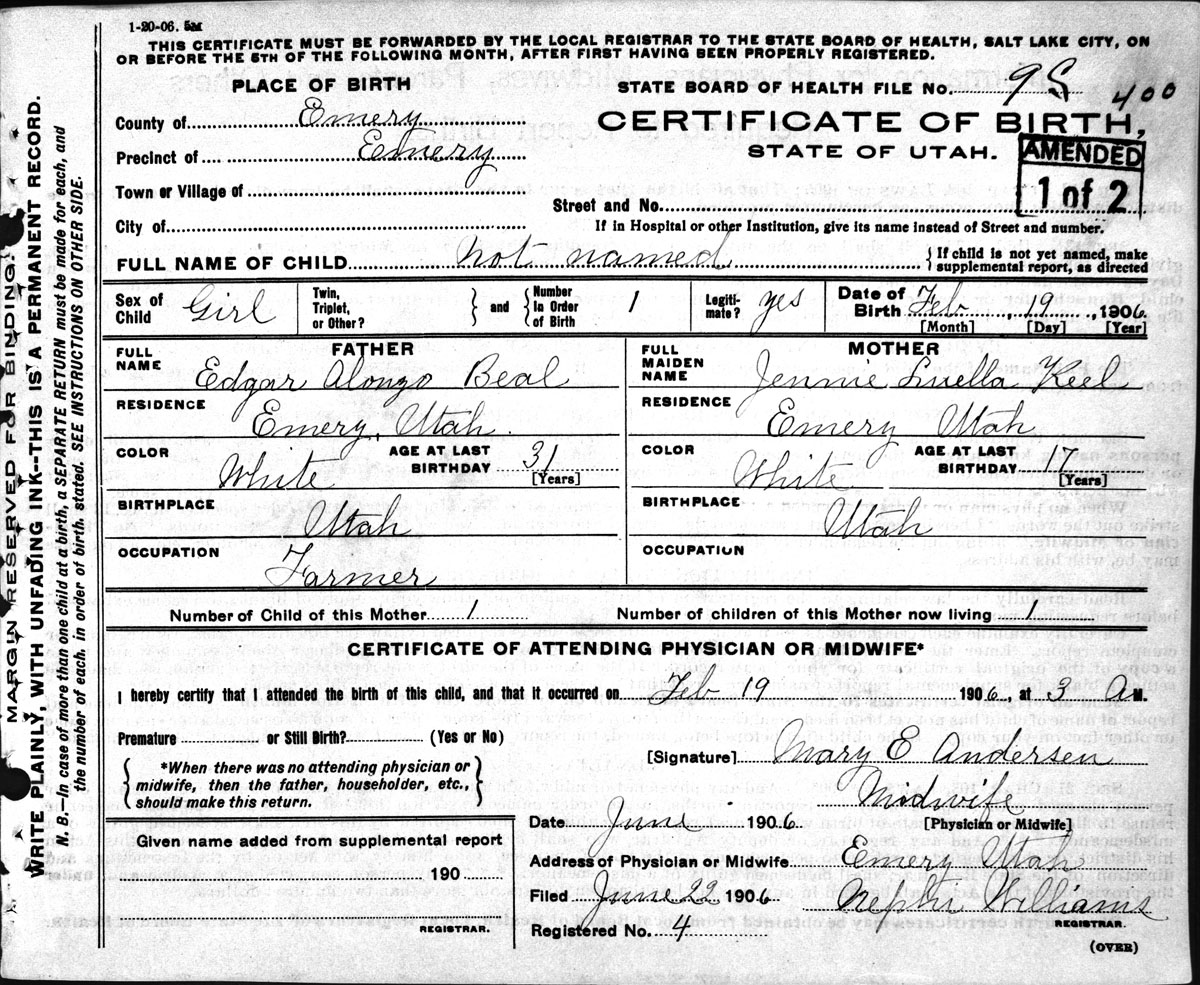 1-20-06. 5M
THIS CERTIFICATE MUST BE FORWARDED BY THE LOCAL REGISTRAR TO THE STATE BOARD OF HEALTH, SALT LAKE CITY, ON
OR BEFORE THE 5TH OF THE FOLLOWING MONTH, AFTER FIRST HAVING BEEN PROPERLY REGISTERED.
PLACE OF BIRTH
STATE BOARD OF HEALTH FILE No. 95 400
County of Emery
CERTIFICATE OF BIRTH,
Precinct of Emery
STATE OF UTAH.
AMENDED
1 of 2
Town or Village of
Street and No.
City of
If in Hospital or other Institution, give its name instead of Street and number.
FULL NAME OF CHILD not named { If child is not yet named, make
supplemental report, as directed
Sex of Child Girl
Twin, Triplet, or Other?
and
Number In Order of Birth 1
Legiti-mate? yes
Date of Birth Feb, 19, 1906
[Month] [Day] [Year]
FATHER
FULL NAME Edgar Alonzo Beal
RESIDENCE
Emery, Utah.
COLOR White
AGE AT LAST BIRTHDAY 31
[Years]
BIRTHPLACE
Utah
OCCUPATION
Farmer
MOTHER
FULL MAIDEN NAME Jennie Luella Keel
RESIDENCE
Emery Utah
COLOR White
AGE AT LAST BIRTHDAY
[Years]
BIRTHPLACE
Utah
OCCUPATION
Number of Child of this Mother 1 Number of children of this Mother now living 1
CERTIFICATE OF ATTENDING PHYSICIAN OR MIDWIFE*
I hereby certify that I attended the birth of this child, and that it occurred on Feb 19 1906, at 3 A M.
Premature or Still Birth? (Yes or No)
[Signature] Mary E Andersen
*When there was no attending physician or
midwife, then the father, householder, etc.,
should make this return.
Midwife
[Physician or Midwife]
Date June 1906
Address of Physician or Midwife Emery Utah
Filed June 22 1906 Nephi Williams
REGISTRAR.
Registered No. 4
(OVER)
Given name added from supplemental report
190
REGISTRAR.
MARGIN RESERVED FOR BINDING.
WRITE PLAINLY, WITH UNFADING INK--THIS IS A PERMANENT RECORD.
N. B.—In case of more than one child at a birth, a SEPARATE RETURN must be made for each, and
the number of each, in order of birth, stated. SEE INSTRUCTIONS ON OTHER SIDE.